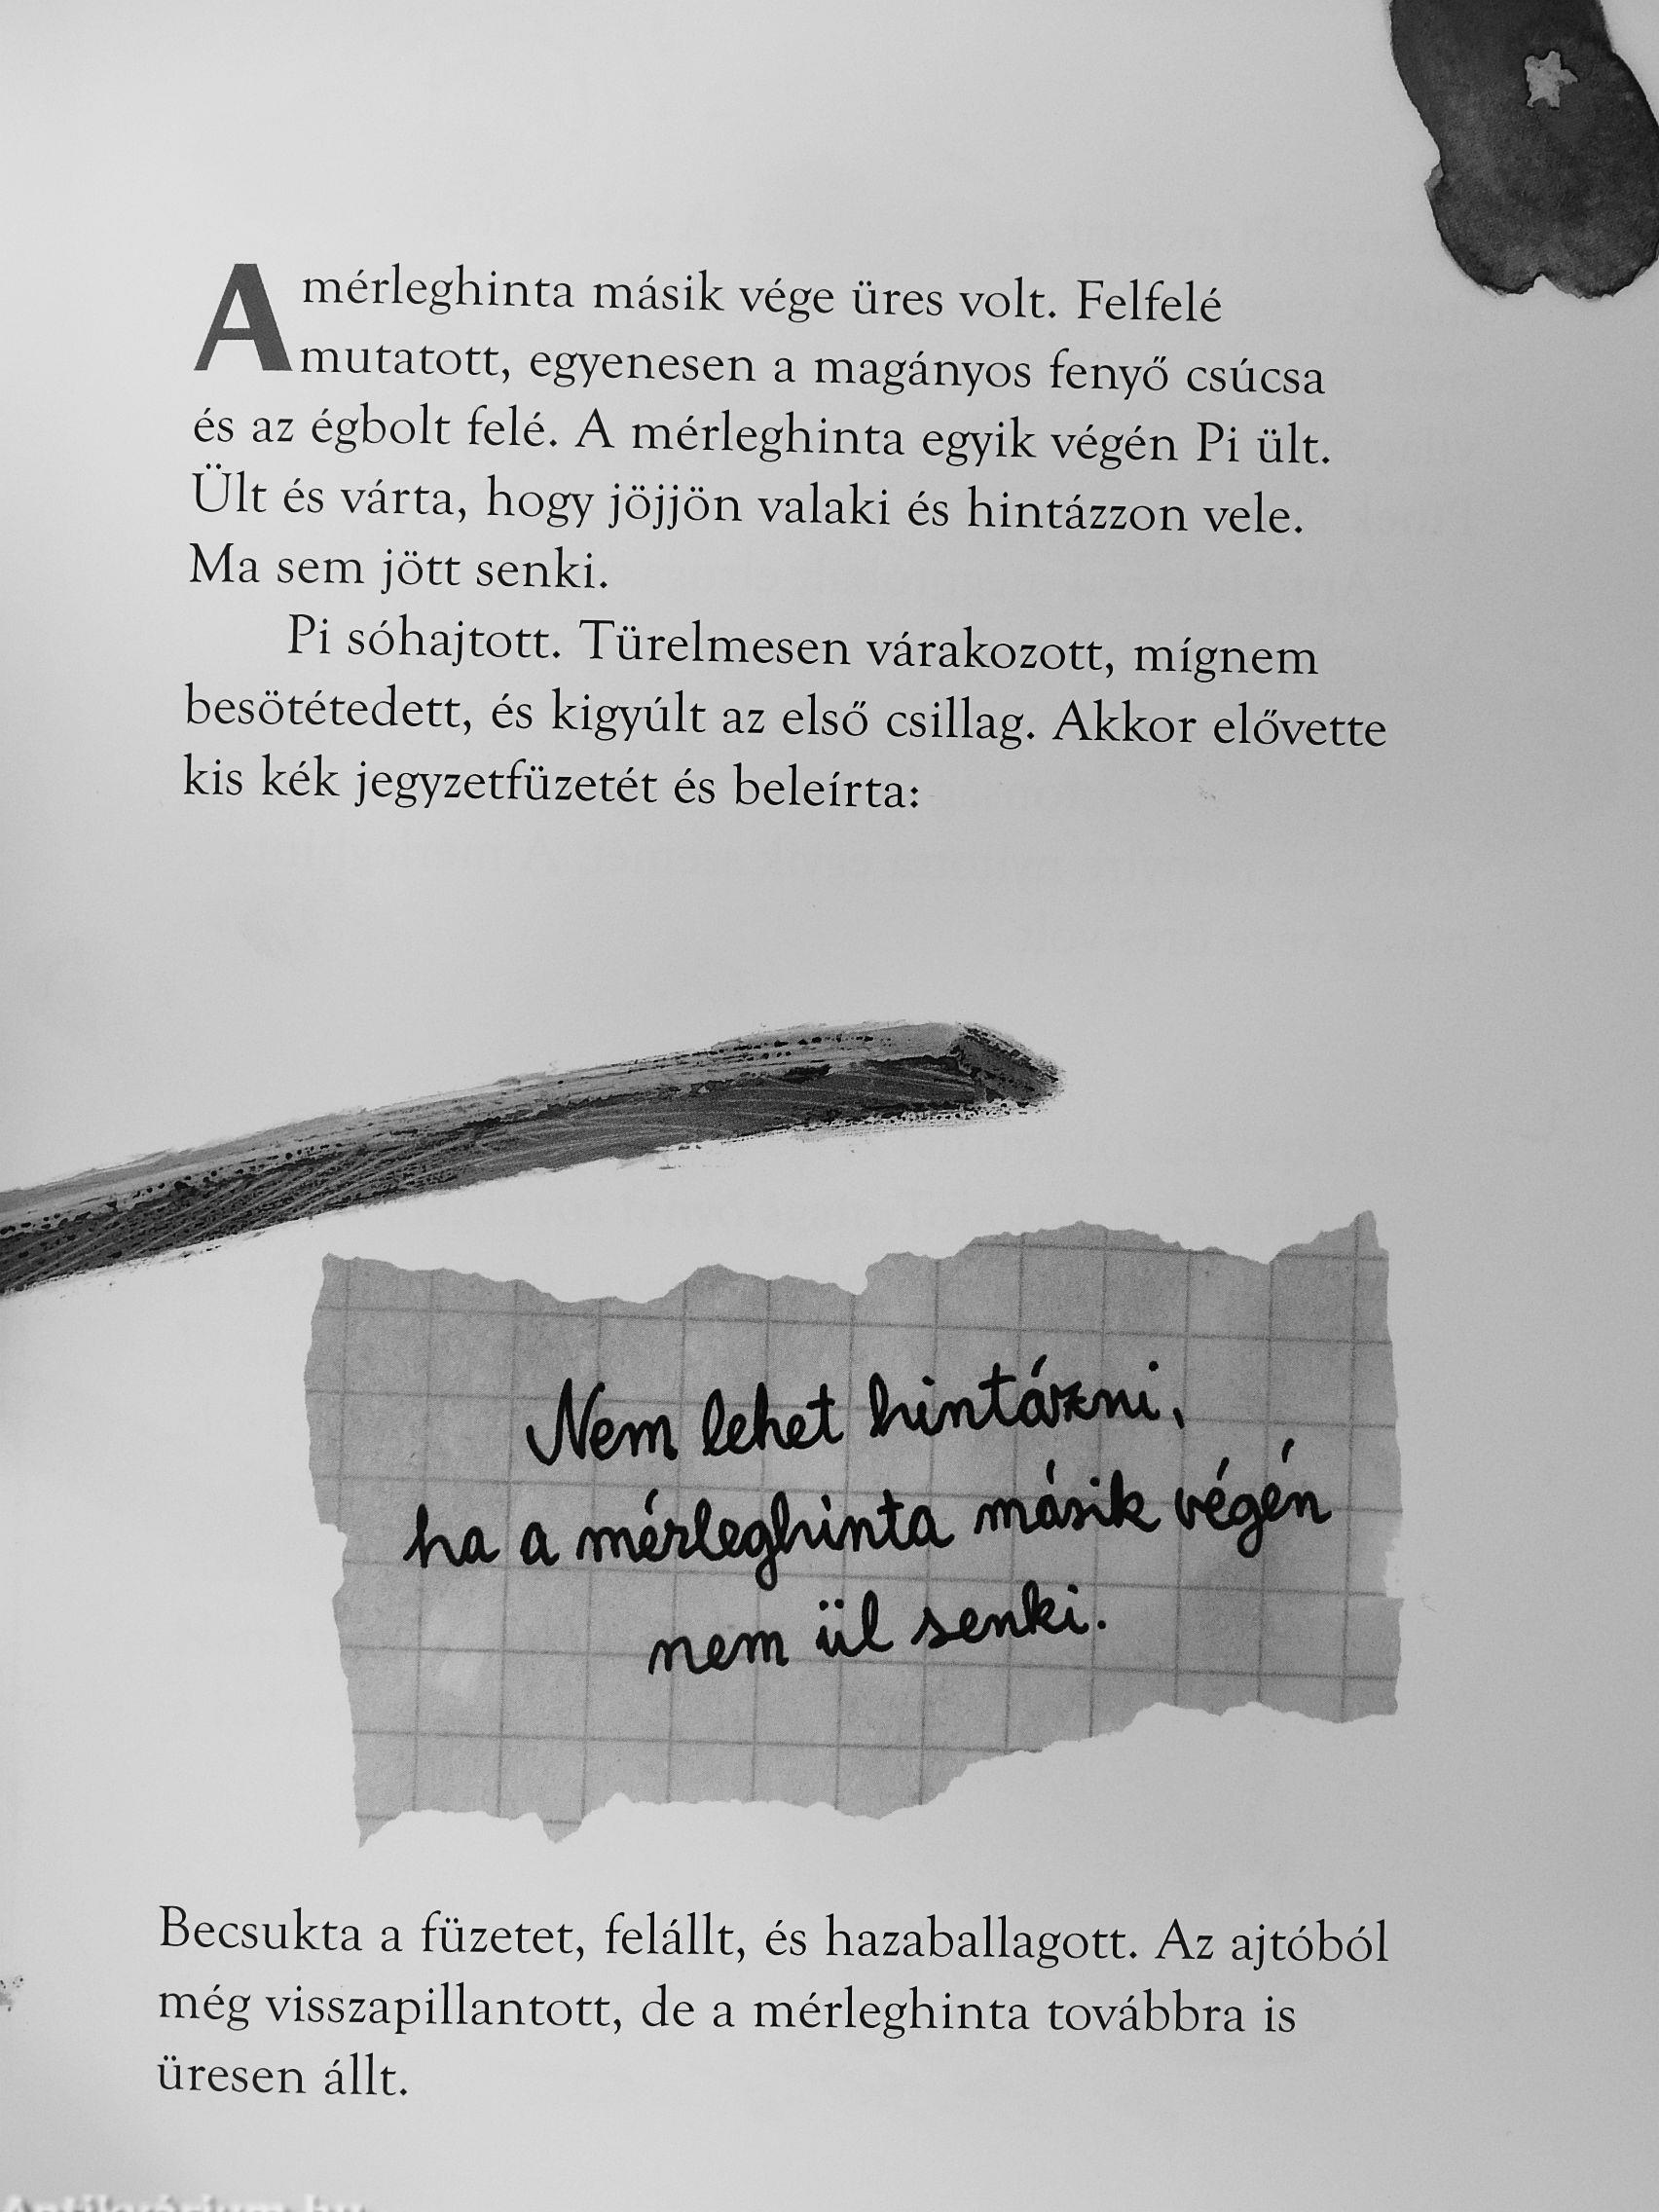 A mérleghinta másik vége üres volt. Felfelé
mutatott, egyenesen a magányos fenyő csúcsa
és az égbolt felé. A mérleghinta egyik végén Pi ült.
Ült és várta, hogy jöjjön valaki és hintázzon vele.
Ma sem jött senki.
Pi sóhajtott. Türelmesen várakozott, mígnem
besötétedett, és kigyúlt az első csillag. Akkor elővette
kis kék jegyzetfüzetét és beleírta:
Nem lehet hintázni,
ha a mérleghinta másik végén
nem ül senki.
Becsukta a füzetet, felállt, és hazaballagott. Az ajtóból
még visszapillantott, de a mérleghinta továbbra is
üresen állt.